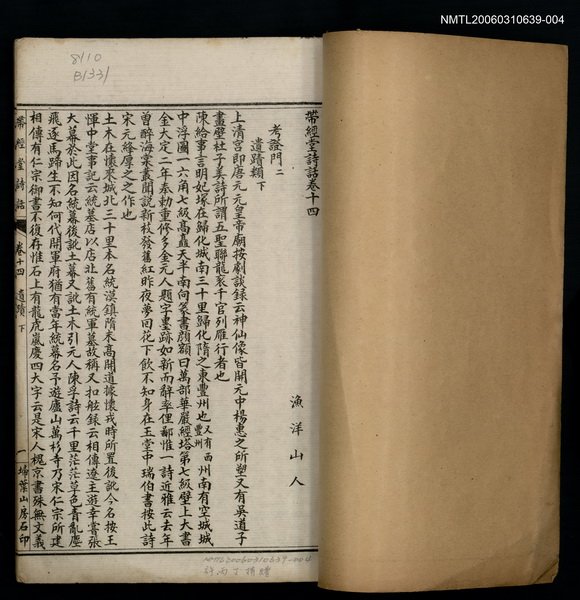 NMTL20060310639-004
8/10
B(33)
帶經堂詩話卷十四
漁洋山人
考證門二
遺蹟類下
上清宮即唐元元皇帝廟按劇談錄云神仙像皆開元中楊惠之所塑又有吳道子
畫壁杜子美詩所謂五聖聯龍衮千官列雁行者也
陳給事言明妃塚在歸化城南三十里歸化隋之東豐州也又有西豐州州南有空城城
中浮圖一六角七級高矗天半南向篆書顏額曰萬部華嚴經塔第七級壁上大書
金大定二年奉勅重修多金元人題字墨跡如新而辭率俚鄙惟一詩近雅云去年
曾醉海棠叢聞說新枝發舊紅昨夜夢回花下飲不知身在玉堂中瑞伯書按此詩
宋元絳厚之之作也
土木在懷來城北三十里本名統漠鎮隋末高開道據懷戎時所置後訛今名按王
惲中堂事記云統墓店以店北舊有統軍墓故稱又扣舷錄云相傳遼主遊幸嘗張
大幕於此因名統幕後訛土幕又訛土木引元人陳孚詩云千里茫茫草色青亂塵
飛逐馬歸生不知何代開軍府猶有當年統幕名予遊廬山萬杉寺乃宋仁宗所建
相傳有仁宗御書不復存惟石上有龍虎嵐慶四大字云是宋人槐京書殊無文義
帶經堂詩話
卷十四 遺蹟下
一 埽葉山房石印
NMTL20060310639-004
許丙丁捐贈